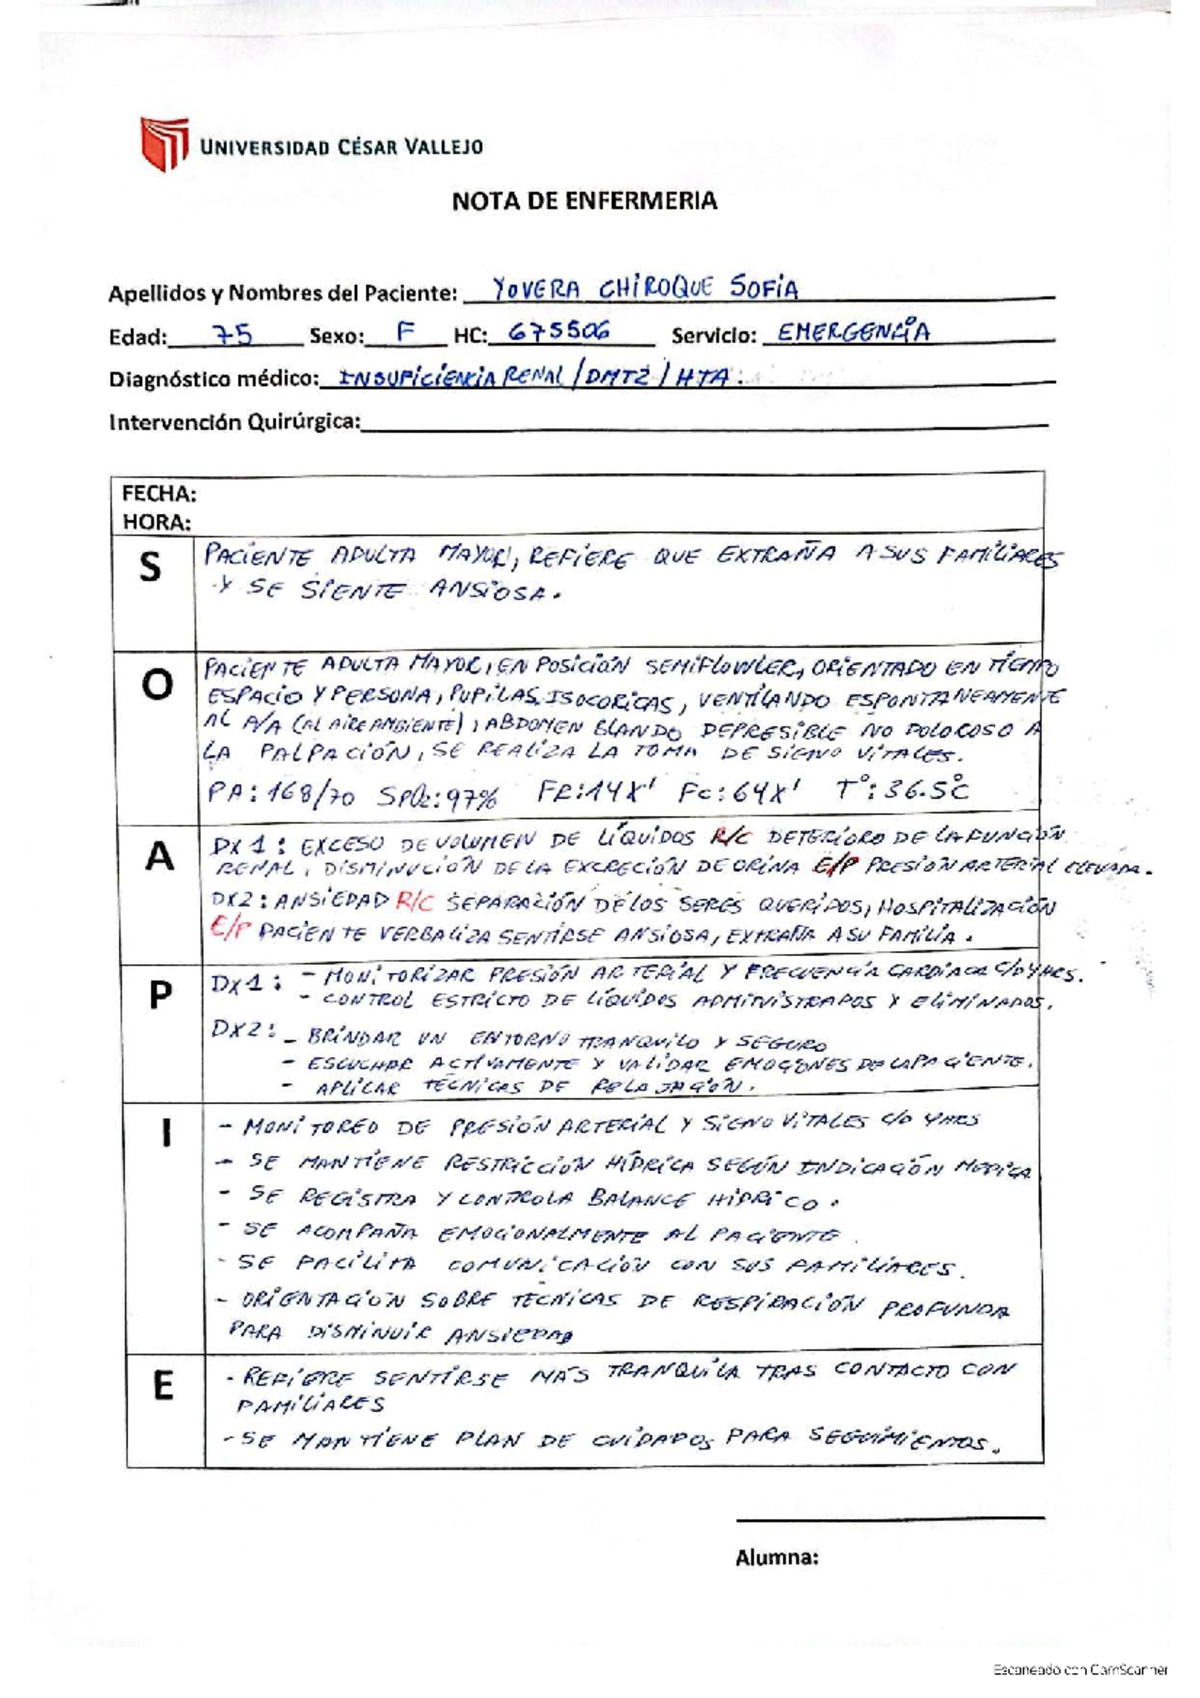 UNIVERSIDAD CÉSAR VALLEJO
NOTA DE ENFERMERIA
Apellidos y Nombres del Paciente: YOVERA CHIROQUE SOFIA
Edad: 75 Sexo: F HC: 675506 Servicio: EMERGENCIA
Diagnóstico médico: INSUFICIENCIA RENAL / DMT2 / HTA.
Intervención Quirúrgica:
FECHA:
HORA:
S
PACIENTE ADULTA MAYOR, REFIERE QUE EXTRAÑA A SUS FAMILIARES
Y SE SIENTE ANSIOSA.
O
PACIENTE ADULTA MAYOR, EN POSICIÓN SEMIFLOWLER, ORIENTADO EN TIEMPO
ESPACIO Y PERSONA, PUPILAS ISOCORICAS, VENTILANDO ESPONTANEAMENTE
AL A/A (AL AIRE AMBIENTE), ABDOMEN BLANDO DEPRESIBLE NO DOLOROSO A
LA PALPACIÓN, SE REALIZA LA TOMA DE SIGNO VITALES.
PA: 168/70 SpO2: 97% FR: 14X' Fc: 64X' T°: 36.5°C
A
DX 1: EXCESO DE VOLUMEN DE LÍQUIDOS R/C DETERIORO DE LA FUNCIÓN
RENAL, DISMINUCIÓN DE LA EXCRECIÓN DE ORINA E/P PRESION ARTERIAL ELEVADA.
DX2: ANSIEDAD R/C SEPARACIÓN DE LOS SERES QUERIDOS, HOSPITALIZACIÓN
E/P PACIENTE VERBALIZA SENTIRSE ANSIOSA, EXTRAÑA A SU FAMILIA.
P
DX1: - MONITORIZAR PRESIÓN ARTERIAL Y FRECUENCIA CARDIACA C/04HRS.
- CONTROL ESTRICTO DE LÍQUIDOS ADMINISTRADOS Y ELIMINADOS.
DX2: - BRINDAR UN ENTORNO TRANQUILO Y SEGURO
- ESCUCHAR ACTIVAMENTE Y VALIDAR EMOCIONES DE LA PACIENTE.
- APLICAR TÉCNICAS DE RELAJACIÓN.
I
- MONITOREO DE PRESIÓN ARTERIAL Y SIGNO VITALES C/0 4HRS
- SE MANTIENE RESTRICCIÓN HÍDRICA SEGÚN INDICACIÓN MEDICA
- SE REGISTRA Y CONTROLA BALANCE HIDRICO.
- SE ACOMPAÑA EMOCIONALMENTE AL PACIENTE.
- SE FACILITA COMUNICACIÓN CON SUS FAMILIARES.
- ORIENTACION SOBRE TECNICAS DE RESPIRACIÓN PROFUNDA
PARA DISMINUIR ANSIEDAD
E
- REFIERE SENTIRSE MÁS TRANQUILA TRAS CONTACTO CON
FAMILIARES
- SE MANTIENE PLAN DE CUIDADOS PARA SEGUIMIENTOS.
Alumna:
Escaneado con CamScanner